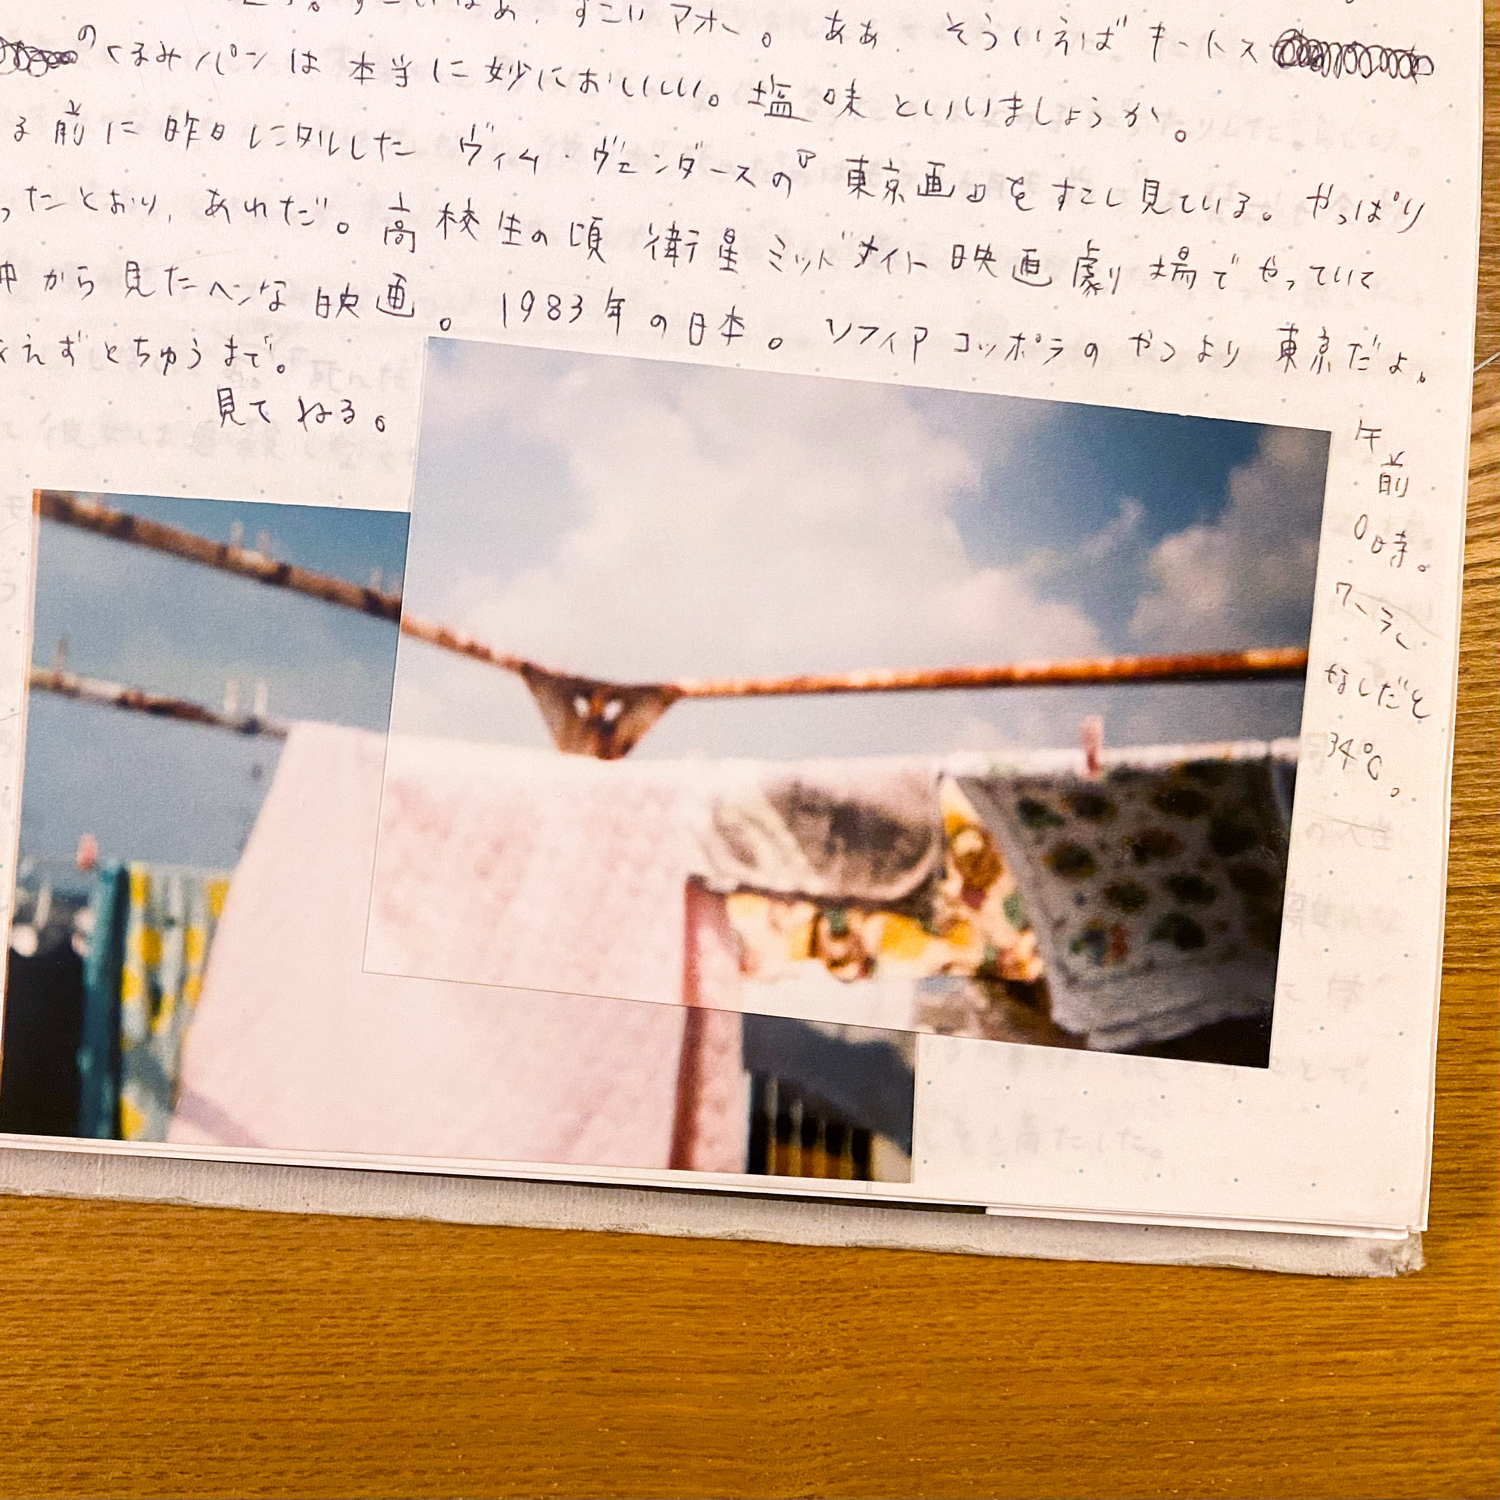 すごいなあ、すごいアオー。ああ、そういえばキートス
のくるみパンは本当に妙においしい。塩味といいましょうか。
る前に昨日レンタルしたヴィム・ヴェンダースの『東京画』をすこし見ている。やっぱり
ったとおり、あれだ。高校生の頃衛星ミッドナイト映画劇場でやっていて
中から見たヘンな映画。1983年の日本。ソフィアコッポラのやつより東京だよ。
えずとちゅうまで。
見てねる。
午前
0時。
クーラー
なしだと
34℃。